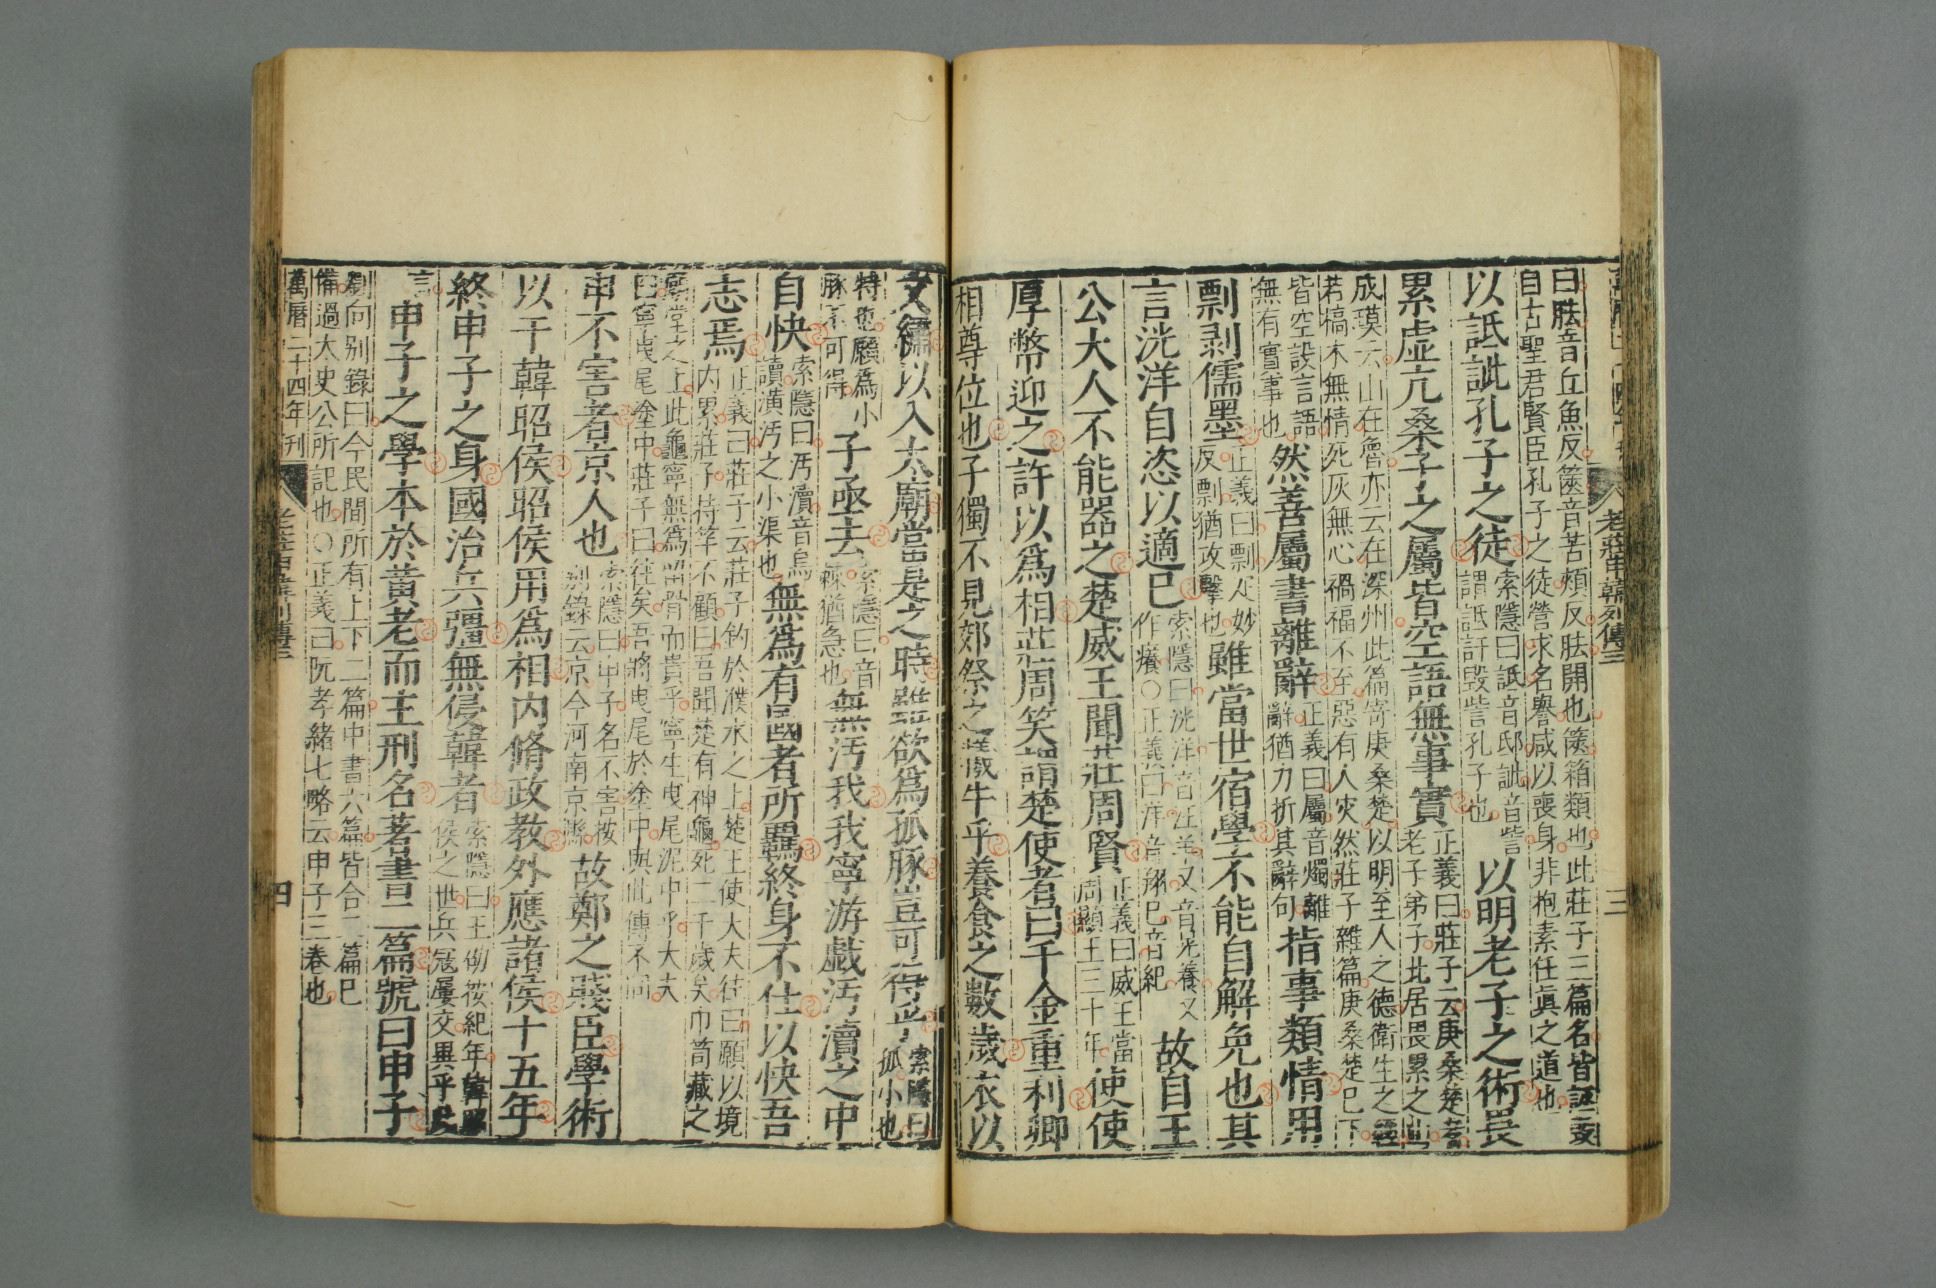 老莊申韓列傳三
三
曰胠音丘魚反篋音苦頰反胠開也篋箱類也此莊子三篇名皆誣毀
自古聖君賢臣孔子之徒營求名譽咸以喪身非抱素任真之道也
以詆訿孔子之徒
索隱曰詆音邸訿音訾
謂詆訐毀訾孔子也
以明老子之術畏
累虛亢桑子之屬皆空語無事實
正義曰莊子云庚桑楚者
老子弟子北居畏累之山
成璞云山在魯亦云在深州此篇寄庚桑楚以明至人之德衛生之經
若槁木無情死灰無心禍福不至惡有人灾然莊子雜篇庚桑楚已下
皆空設言語
無有實事也
然善屬書離辭
正義曰屬音燭離
辭猶力折其辭句
指事類情用
剽剥儒墨
正義曰剽疋妙
反剽猶攻擊也
雖當世宿學不能自解免也其
言洸洋自恣以適已
索隱曰洸洋音汪羊又音晃養又
作瀁○正義曰洋音翔已音紀
故自王
公大人不能器之楚威王聞莊周賢
正義曰威王當
周顯王三十年
使使
厚幣迎之許以爲相莊周笑謂楚使者曰千金重利卿
相尊位也子獨不見郊祭之犧牛乎養食之數歲衣以
文繡以入太廟當是之時雖欲爲孤豚豈可得乎
索隱曰
孤小也
特也願爲小
豚不可得
子亟去
索隱曰音
棘猶急也
無汚我我寧游戲汚瀆之中
自快
索隱曰汚瀆音烏
讀潢汚之小渠也
無爲有國者所羈終身不仕以快吾
志焉
正義曰莊子云莊子釣於濮水之上楚王使大夫往曰願以境
内累莊子持竿不顧曰吾聞楚有神龜死二千歲矣巾笥藏之
廟堂之上此龜寧無爲留骨而貴乎寧生曳尾泥中乎大夫
曰寧曳尾塗中莊子曰往矣吾將曳尾於塗中與此傳不同
申不害者京人也
索隱曰申子名不害按
别錄云京今河南京縣
故鄭之賤臣學術
以干韓昭侯昭侯用爲相内脩政教外應諸侯十五年
終申子之身國治兵彊無侵韓者
索隱曰王劭按紀年韓昭
侯之世兵寇屢交異乎史
言
申子之學本於黃老而主刑名著書二篇號曰申子
劉向别錄曰今民間所有上下二篇中書六篇皆合二篇已
備過太史公所記也○正義曰阮孝緒七略云申子三卷也
萬曆二十四年刊
老莊申韓列傳三
四